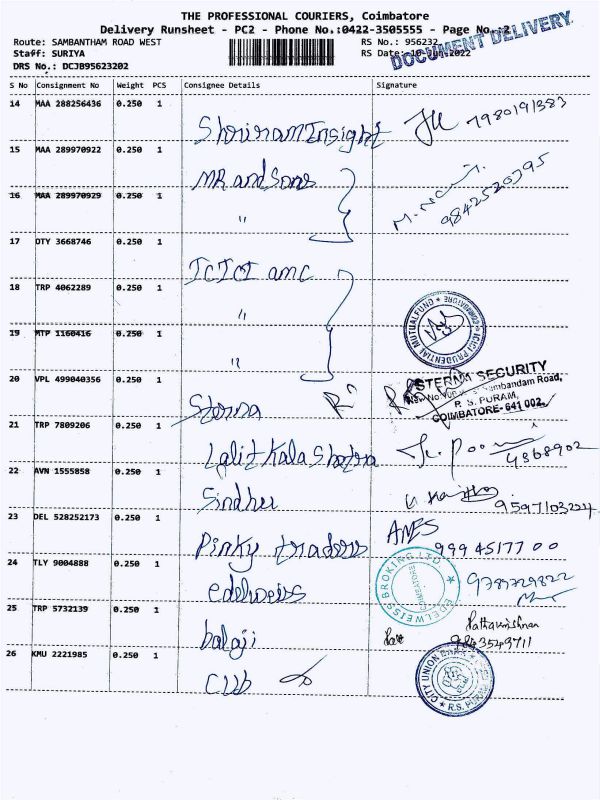 THE PROFESSIONAL COURIERS, Coimbatore
Delivery Runsheet - PC2 - Phone No.:0422-3505555 - Page No.:2
DOCUMENT DELIVERY
Route: SAMBANTHAM ROAD WEST RS No.: 956232
Staff: SURIYA RS Date: 10-Jun-2022
DRS No.: DCJB95623202
S No Consignment No Weight PCS Consignee Details Signature
14 MAA 288256436 0.250 1
Shriram Insight 7980191383
15 MAA 289970922 0.250 1
MR and Sons
16 MAA 289970929 0.250 1
" 9842520795
17 OTY 3668746 0.250 1
ICICI amc
18 TRP 4062289 0.250 1
"
ICICI PRUDENTIAL MUTUAL FUND * COIMBATORE *
19 MTP 1160416 0.250 1
"
20 VPL 499040356 0.250 1
STERNA SECURITY
Sambandam Road,
R. S. PURAM,
COIMBATORE- 641 002.
Sterna
21 TRP 7809206 0.250 1
Lalit Kala Shetra 4368902
22 AVN 1555858 0.250 1
Sindhu
23 DEL 528252173 0.250 1
Pinky traders 9994517700
24 TLY 9004888 0.250 1
edelweiss
EDELWEISS BROKING LTD * COIMBATORE
25 TRP 5732139 0.250 1
balaji 9843549711
26 KMU 2221985 0.250 1
CUB
CITY UNION BANK * R.S. PURAM